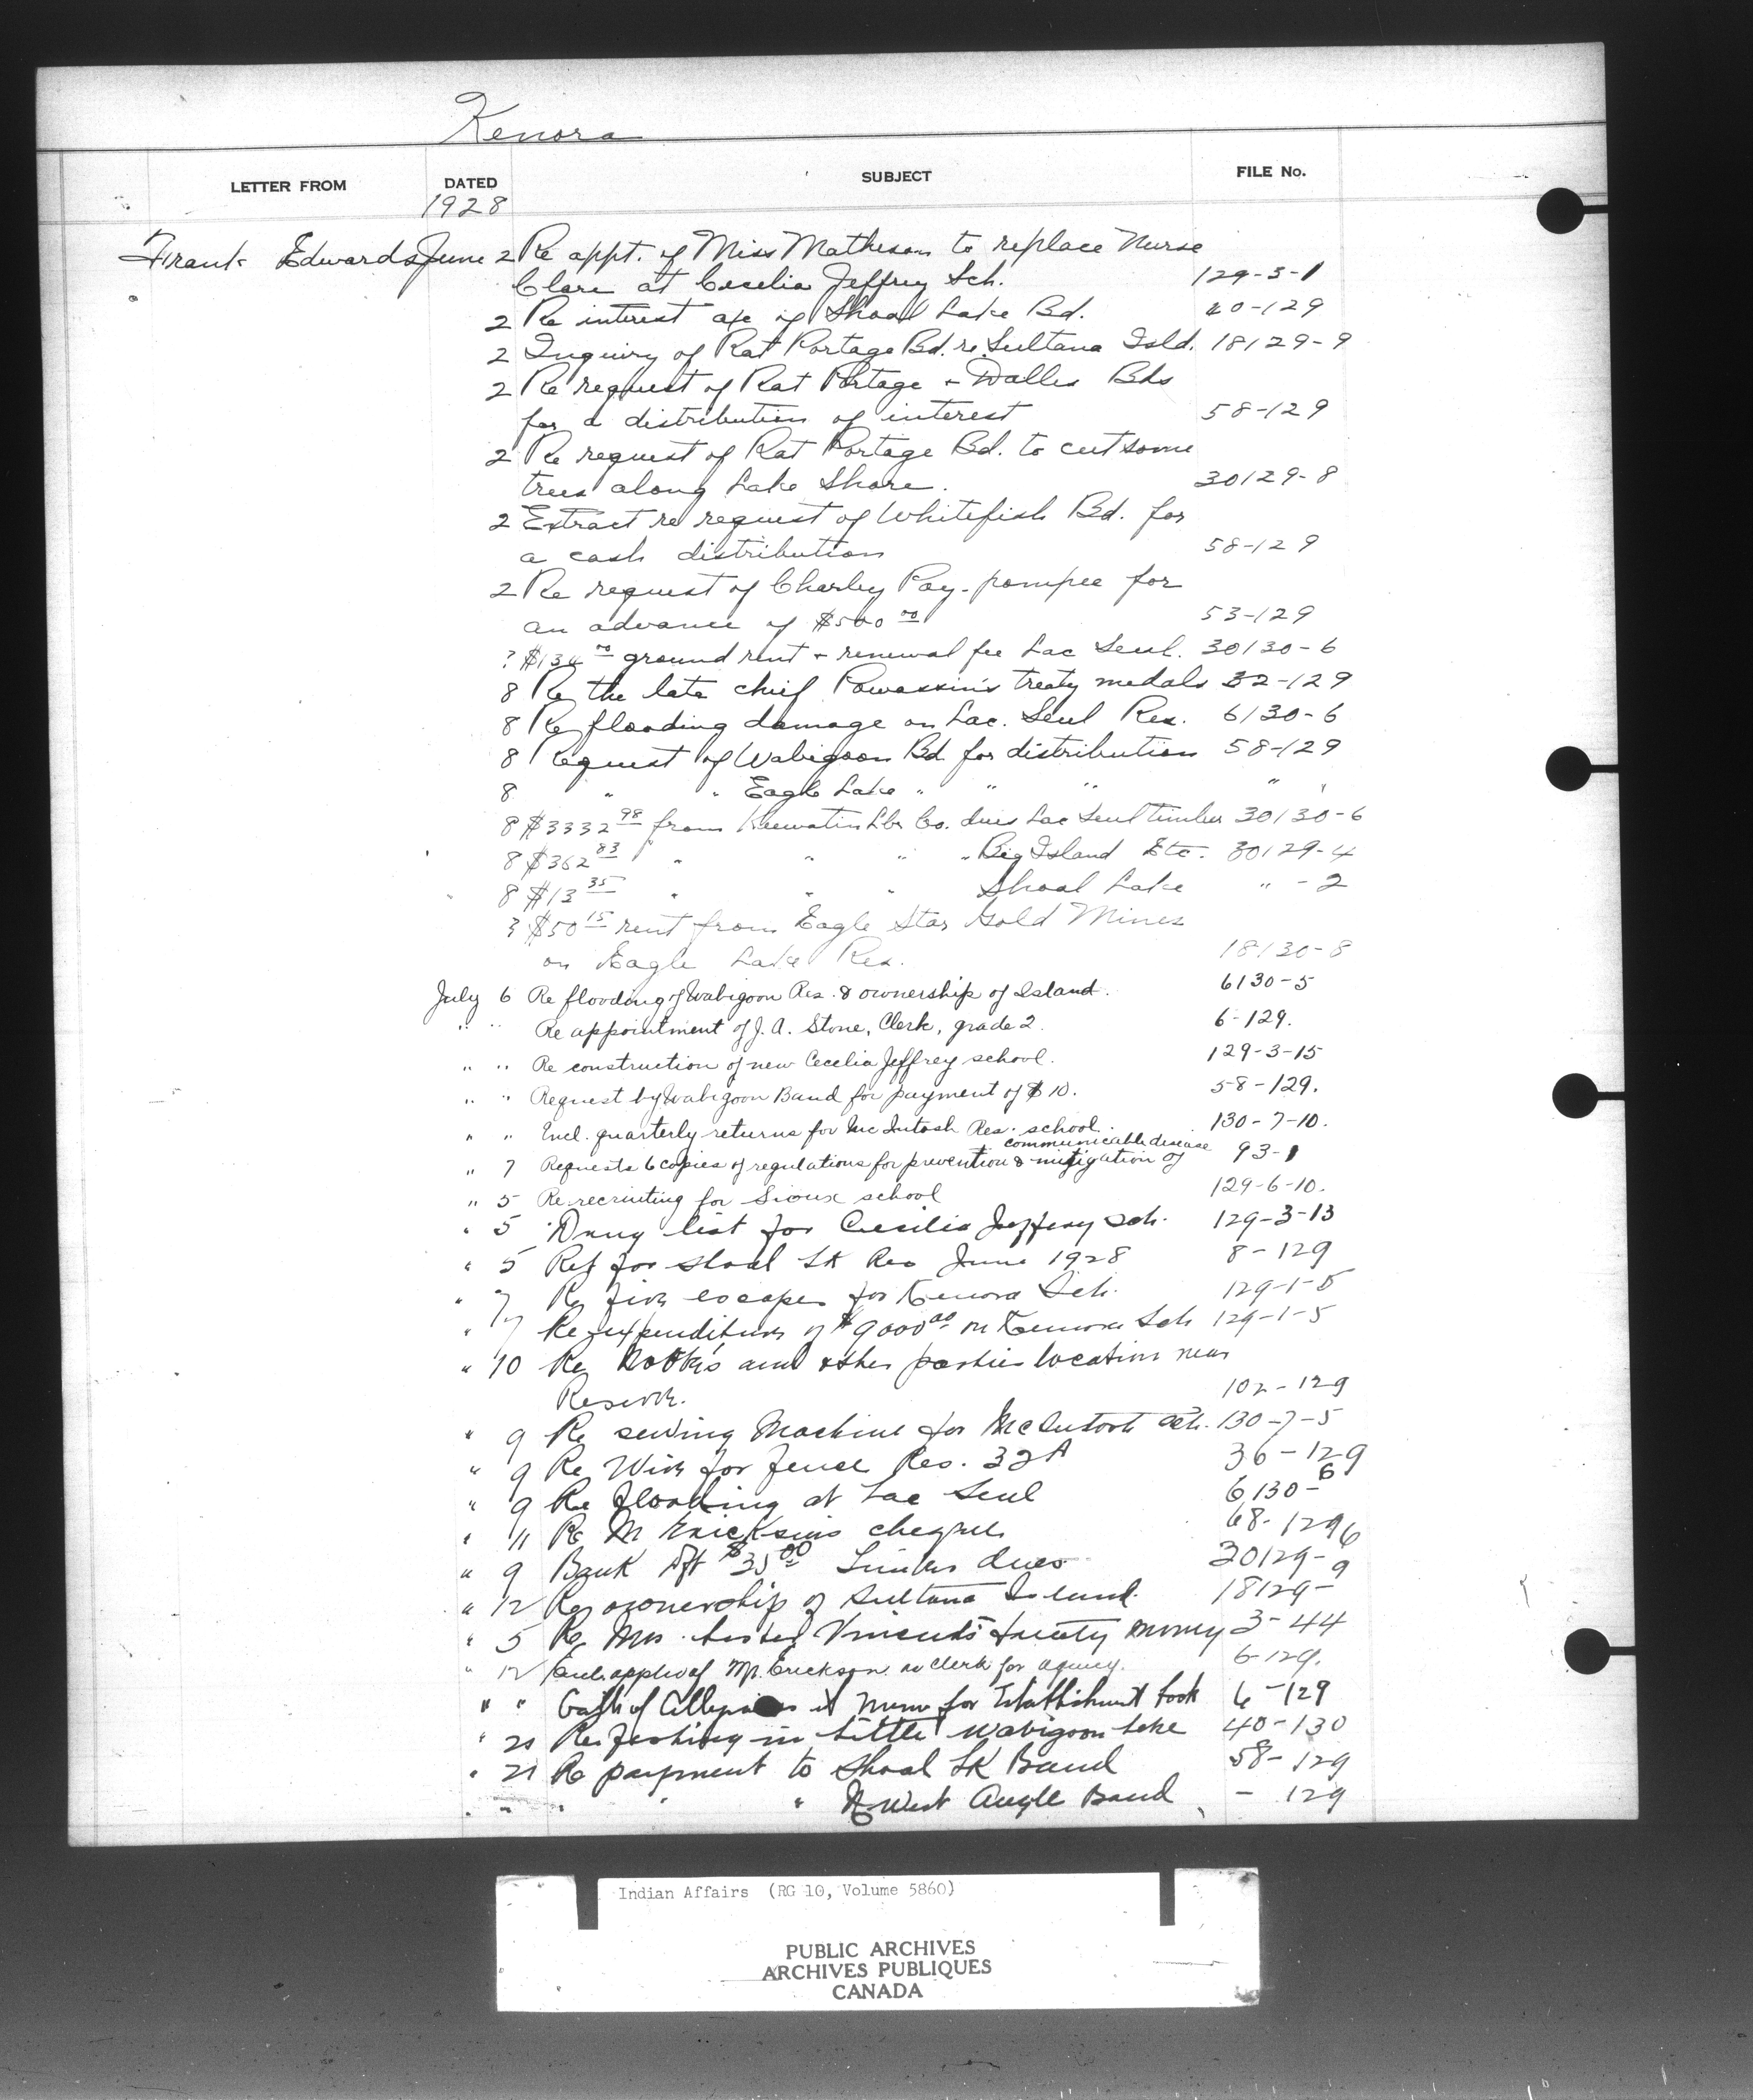 Kenora
LETTER FROM DATED SUBJECT FILE No.
1928
Frank Edwards June 2 Re appt. of Miss Matheson to replace Nurse
Clare at Cecelia Jeffrey Sch. 129-3-1
2 Re interest a/c of Shoal Lake Bd. 40-129
2 Inquiry of Rat Portage Bd. re Sultana Isld. 18129-9
2 Re request of Rat Portage + Dalles Bds
for a distribution of interest 58-129
2 Re request of Rat Portage Bd. to cut some
trees along Lake Shore. 30129-8
2 Extract re request of Whitefish Bd. for
a cash distribution 58-129
2 Re request of Charley Pay-pompee for
an advance of $500 00 53-129
? $134 00 ground rent + renewal fee Lac Seul. 30130-6
8 Re the late chief Powassin's treaty medals 32-129
8 Re flooding damage on Lac. Seul Res. 6130-6
8 Request of Wabigoon Bd for distribution 58-129
8 " " Eagle Lake " " " "
8 $3332 98 from Keewatin Lbr Co. dues Lac Seul timber 30130-6
8 $362 83 " " " " Big Island Etc. 30129-4
8 $13 35 " " " Shoal Lake " -2
? $50 15 rent from Eagle Star Gold Mines
on Eagle Lake Res. 18130-8
July 6 Re flooding of Wabigoon Res. & ownership of Island. 6130-5
" " Re appointment of J. A. Stone, Clerk, grade 2. 6-129.
" " Re construction of new Cecelia Jeffrey school. 129-3-15
" " Request by Wabigoon Band for payment of $10. 58-129.
" " Encl. quarterly returns for McIntosh Res. school. 130-7-10.
communicable disease
" 7 Requests 6 copies of regulations for prevention & mitigation of 93-1
" 5 Re recruiting for Sioux school 129-6-10.
" 5 Drug list for Cecilia Jeffrey Sch. 129-3-13
" 5 Ret for Shoal Lk Res June 1928 8-129
" 7 Re fire escapes for Kenora Sch. 129-1-5
" 7 Re expenditure of $9000 00 on Kenora Sch 129-1-5
" 10 Re and other parties location near
Reserve. 102-129
" 9 Re sewing Machine for McIntosh Sch. 130-7-5
" 9 Re Wire for fence Res. 32A 36-129
" 9 Re flooding at Lac Seul 6130-6
" 11 Re M Erickson's cheques 68-129
" 9 Bank Dft $35 00 Timber dues 30129-6
" 12 Re ownership of Sultana Island. 18129-9
" 5 Re Mrs. Vincent's treaty money 3-44
" 12 Encl. appl. of Mr. Erickson as clerk for agency. 6-129.
" " Oath of & memo for Establishment book 6-129
" 20 Re fishing in Little Wabigoon Lake 40-130
" 21 Re payment to Shoal Lk Band 58-129
" " " " " N. West Angle Band - 129
Indian Affairs (RG 10, Volume 5860)
PUBLIC ARCHIVES
ARCHIVES PUBLIQUES
CANADA